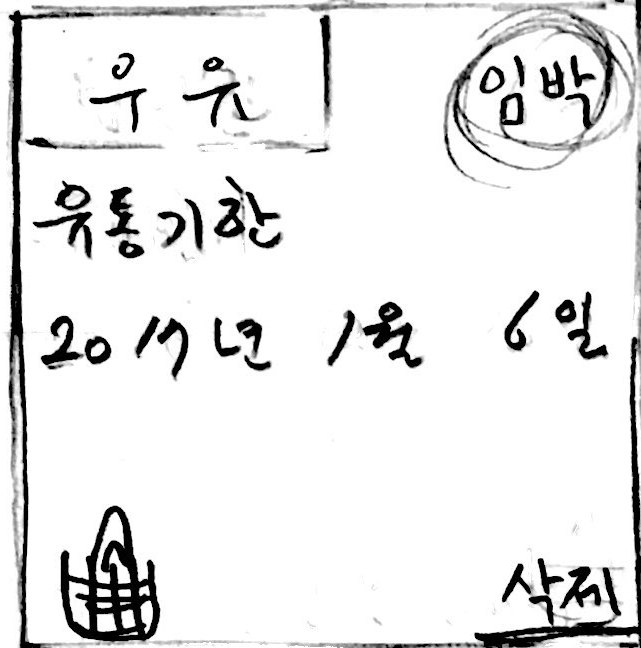 우유
임박
유통기한
2017년 1월 6일
삭제